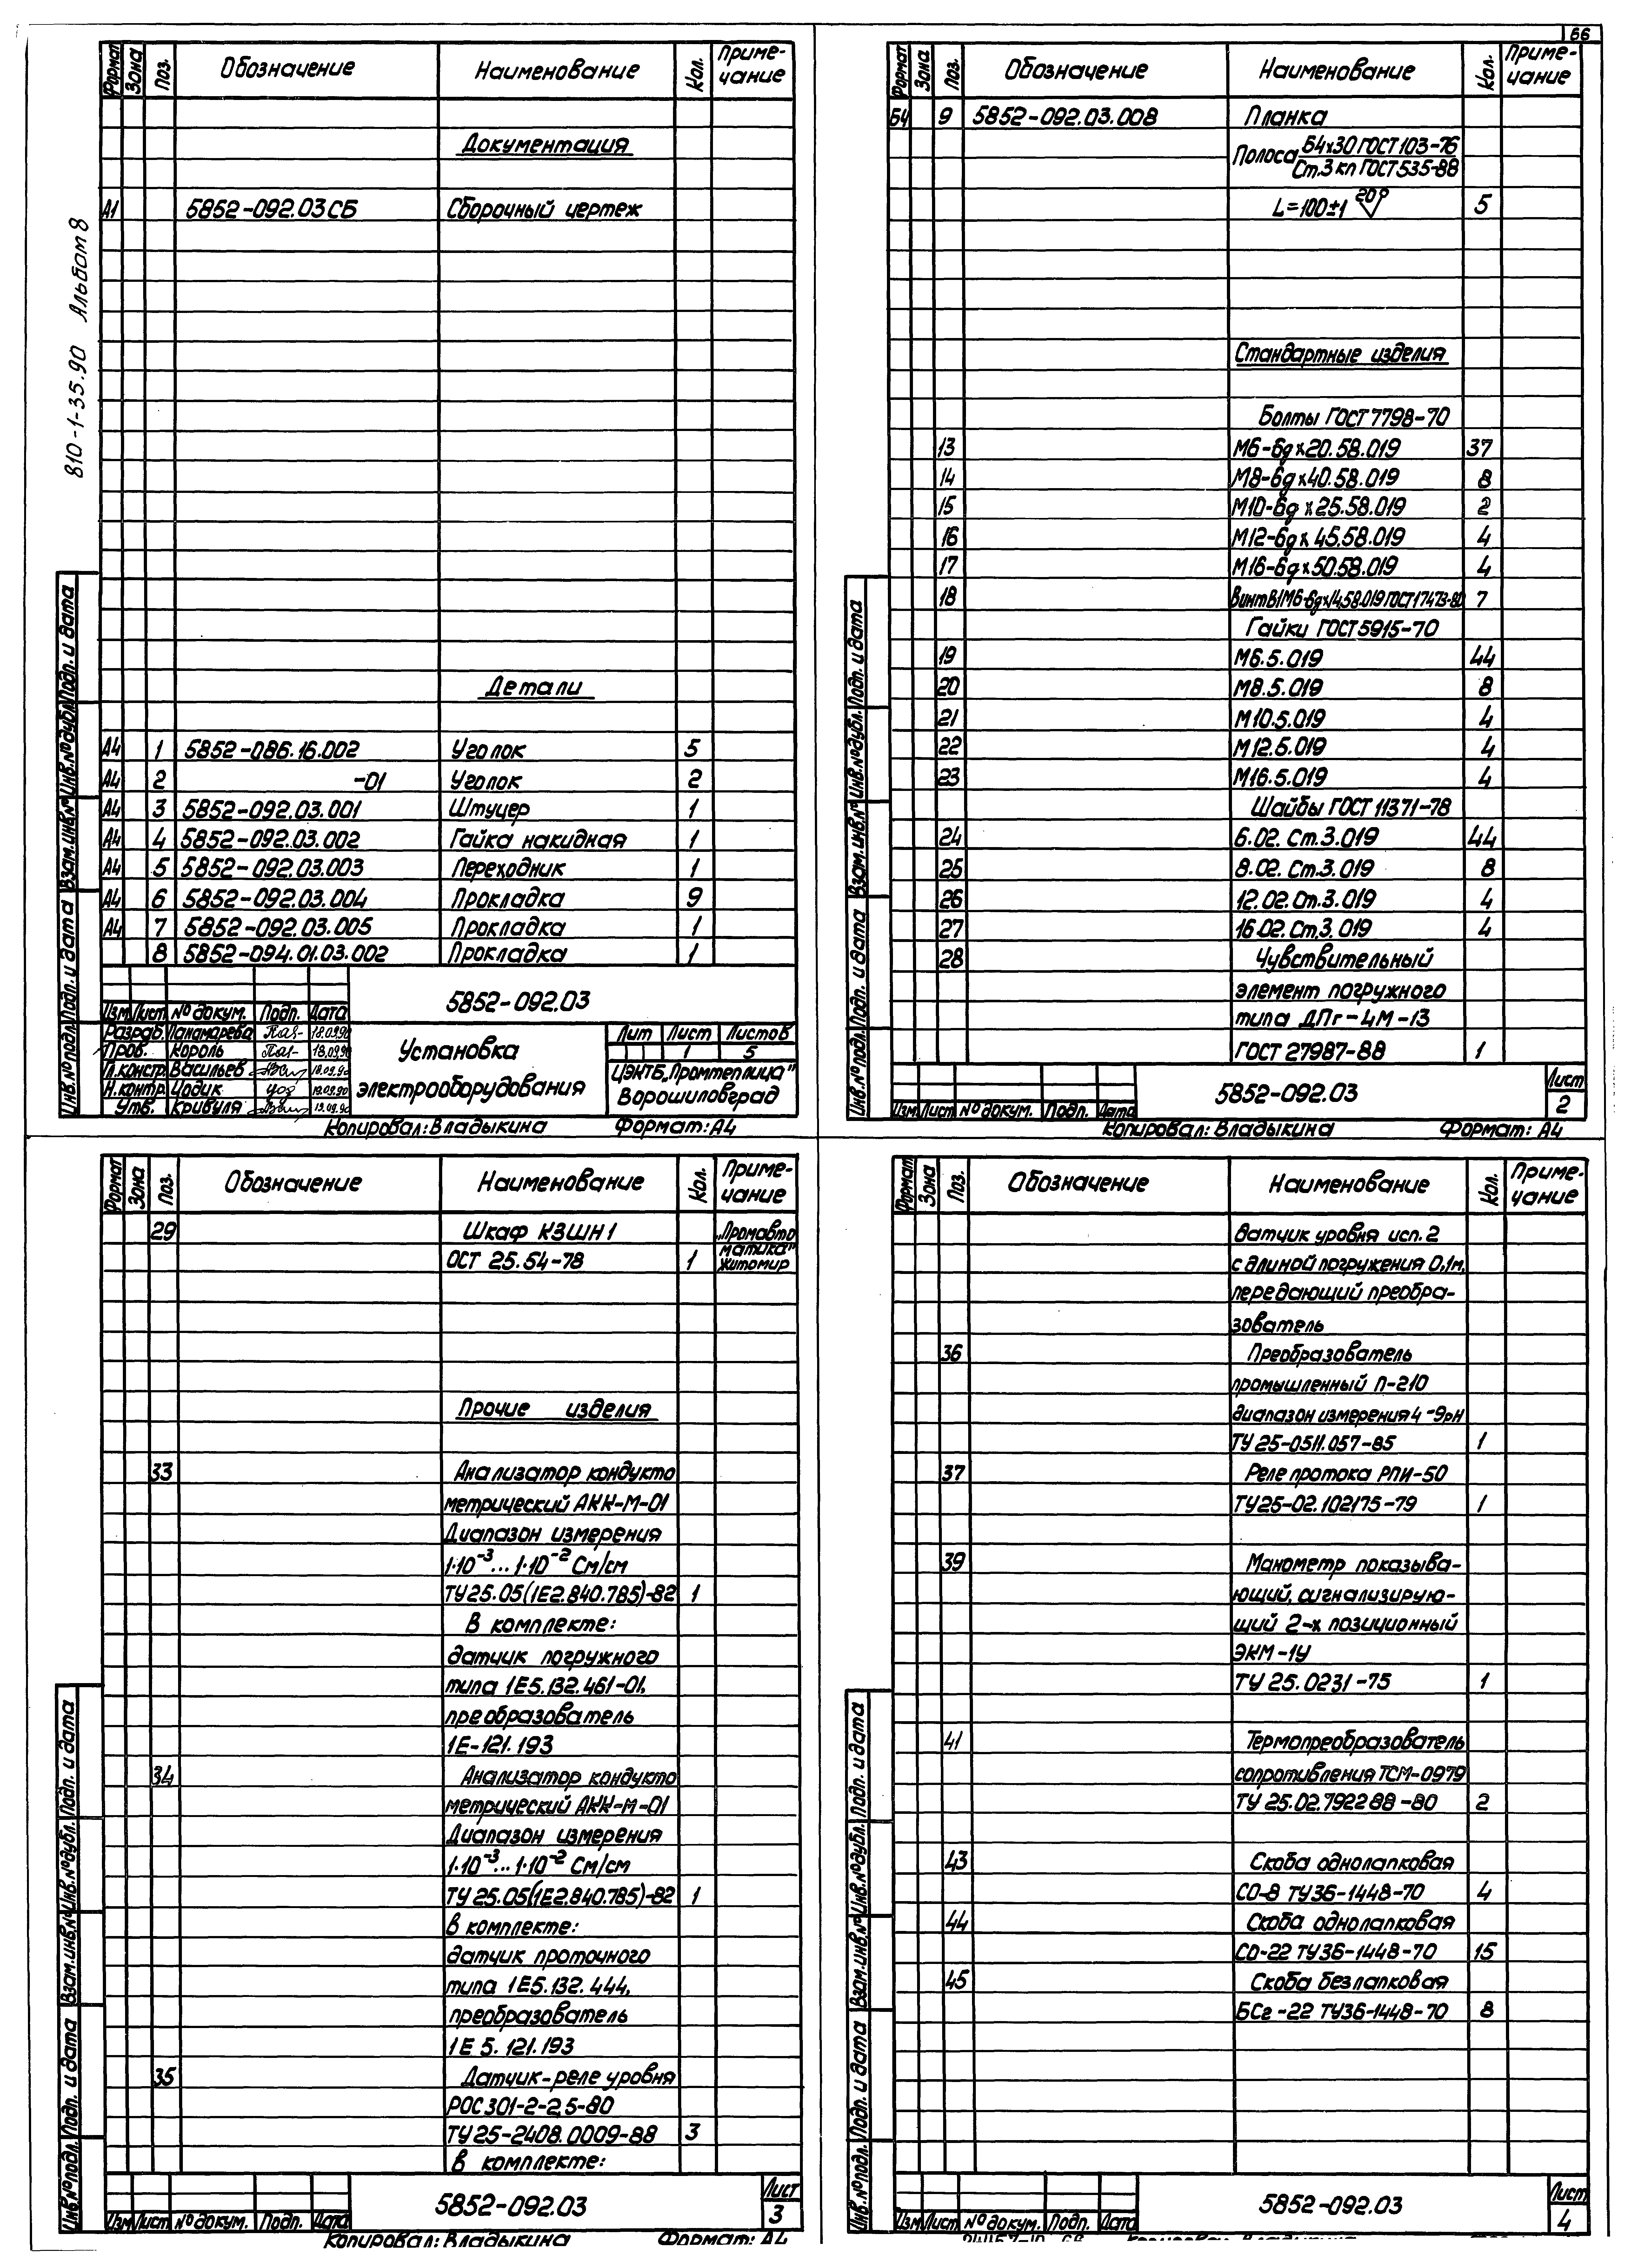 66
810-1-35.90 Альбом 8
Формат Зона Поз. Обозначение Наименование Кол. Приме-
чание
Документация
А1 5852-092.03СБ Сборочный чертеж
Детали
А4 1 5852-086.16.002 Уголок 5
А4 2 -01 Уголок 2
А4 3 5852-092.03.001 Штуцер 1
А4 4 5852-092.03.002 Гайка накидная 1
А4 5 5852-092.03.003 Переходник 1
А4 6 5852-092.03.004 Прокладка 9
А4 7 5852-092.03.005 Прокладка 1
8 5852-094.01.03.002 Прокладка 1
Инв.№подл. Подп. и дата Взам.инв.№ Инв.№дубл. Подп. и дата
5852-092.03
Изм Лист № докум. Подп. Дата
Разраб. Панамарева 18.09.90
Пров. Король 18.09.90
Гл.констр. Васильев 18.09.90
Н.контр. Чодик 19.09.90
Утв. Кривуля 19.09.90
Установка
электрооборудования
Лит Лист Листов
1 5
ЦЭНТБ„Промтеплица"
Ворошиловград
Копировал: Владыкина Формат: А4
Формат Зона Поз. Обозначение Наименование Кол. Приме-
чание
Б4 9 5852-092.03.008 Планка
Полоса Б4х30 ГОСТ 103-76
Ст.3 кп ГОСТ 535-88
L=100±1 20 5
Стандартные изделия
Болты ГОСТ 7798-70
13 М6-6gх20.58.019 37
14 М8-6gх40.58.019 8
15 М10-6gх25.58.019 2
16 М12-6gх45.58.019 4
17 М16-6gх50.58.019 4
18 Винт В1М6-6gх14.58.019 ГОСТ 17473-80 7
Гайки ГОСТ 5915-70
19 М6.5.019 44
20 М8.5.019 8
21 М10.5.019 4
22 М12.5.019 4
23 М16.5.019 4
Шайбы ГОСТ 11371-78
24 6.02. Ст.3.019 44
25 8.02. Ст.3.019 8
26 12.02.Ст.3.019 4
27 16.02.Ст.3.019 4
28 Чувствительный
элемент погружного
типа ДПг-4М-13
ГОСТ 27987-88 1
Инв.№подл. Подп. и дата Взам.инв.№ Инв.№дубл. Подп. и дата
Изм Лист № докум. Подп. Дата
5852-092.03
Лист
2
Копировал: Владыкина Формат: А4
Формат Зона Поз. Обозначение Наименование Кол. Приме-
чание
29 Шкаф КЗШН1 „Промавто
матика"
ОСТ 25.54-78 1 Житомир
Прочие изделия
33 Анализатор кондукто
метрический АКК-М-01
Диапазон измерения
1·10⁻³...1·10⁻² См/см
ТУ25.05(1Е2.840.785)-82 1
В комплекте:
датчик погружного
типа 1Е5.132.461-01,
преобразователь
1Е-121.193
34 Анализатор кондукто
метрический АКК-М-01
Диапазон измерения
1·10⁻³...1·10⁻² См/см
ТУ 25.05(1Е2.840.785)-82 1
В комплекте:
датчик проточного
типа 1Е5.132.444,
преобразователь
1Е 5.121.193
35 Датчик-реле уровня
РОС 301-2-2,5-80
ТУ 25-2408.0009-88 3
В комплекте:
Инв.№подл. Подп. и дата Взам.инв.№ Инв.№дубл. Подп. и дата
Изм Лист № докум. Подп. Дата
5852-092.03
Лист
3
Копировал: Владыкина Формат: А4
Формат Зона Поз. Обозначение Наименование Кол. Приме-
чание
Датчик уровня исп.2
с длиной погружения 0,1м,
передающий преобра-
зователь
36 Преобразователь
промышленный П-210
диапазон измерения 4-9рН
ТУ 25-0511.057-85 1
37 Реле протока РПИ-50
ТУ25-02.102175-79 1
39 Манометр показыва-
ющий, сигнализирую-
щий 2-х позиционный
ЭКМ-1У
ТУ 25.0231-75 1
41 Термопреобразователь
сопротивления ТСМ-0979
ТУ 25.02.792288-80 2
43 Скоба однолапковая
СО-8 ТУ36-1448-70 4
44 Скоба однолапковая
СО-22 ТУ36-1448-70 15
45 Скоба безлапковая
БСг-22 ТУ36-1448-70 8
Инв.№подл. Подп. и дата Взам.инв.№ Инв.№дубл. Подп. и дата
Изм Лист № докум. Подп. Дата
5852-092.03
Лист
4